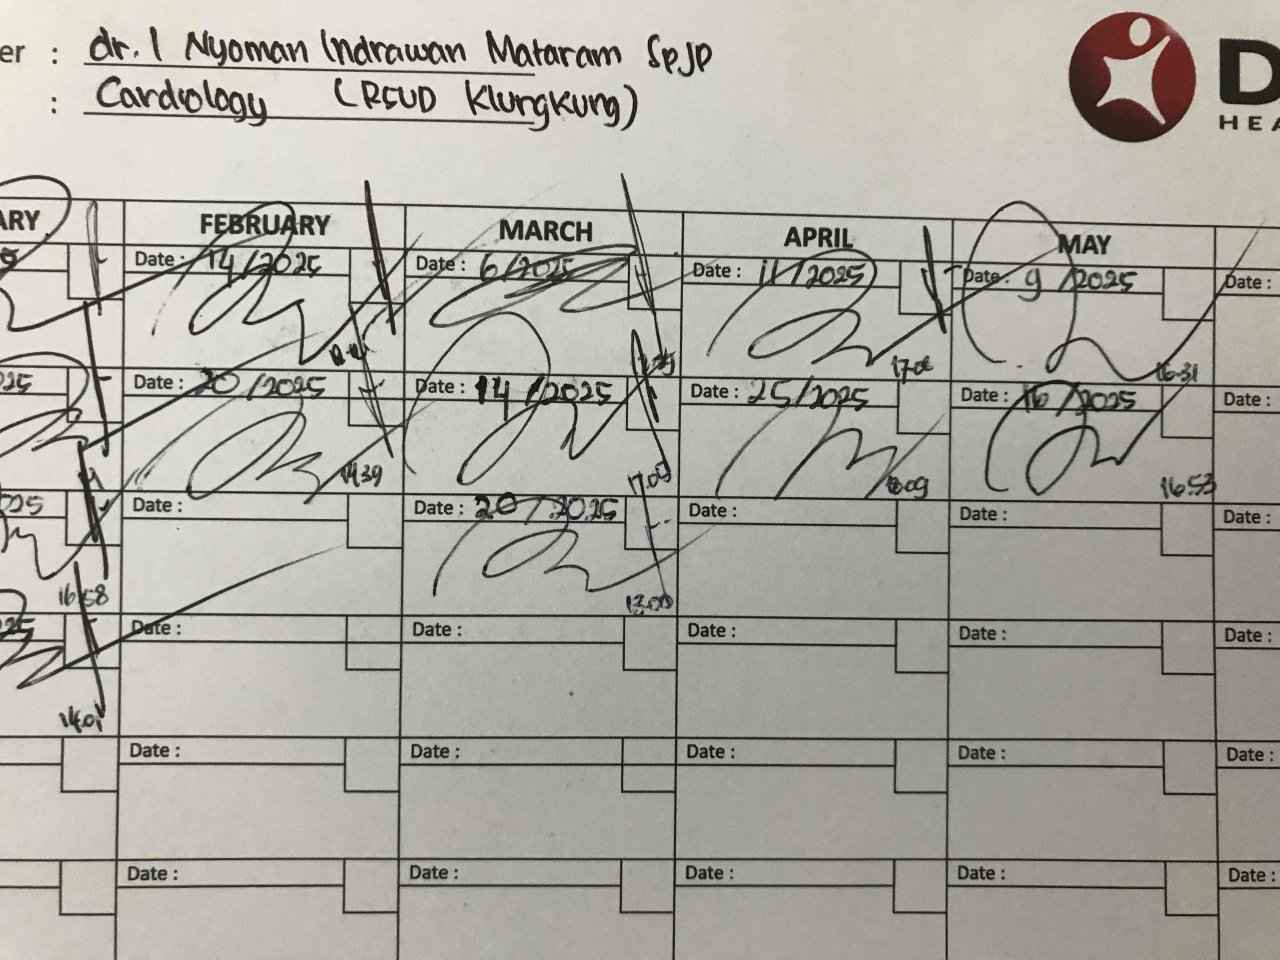 er : dr. I Nyoman Indrawan Mataram SpJP
: Cardiology (RSUD Klungkung)
D
HEA
ARY FEBRUARY MARCH APRIL MAY
Date : 14/2025 Date : 6/2025 Date : 11/2025 Date : 9/2025 Date :
17.06 16.31
025 Date : 20/2025 Date : 14/2025 Date : 25/2025 Date : 16/2025 Date :
14.39 17.09 16.53
025 Date : Date : 20/2025 Date : Date : Date :
16.58 13.00
025 Date : Date : Date : Date : Date :
14.01
Date : Date : Date : Date : Date :
Date : Date : Date : Date : Date :